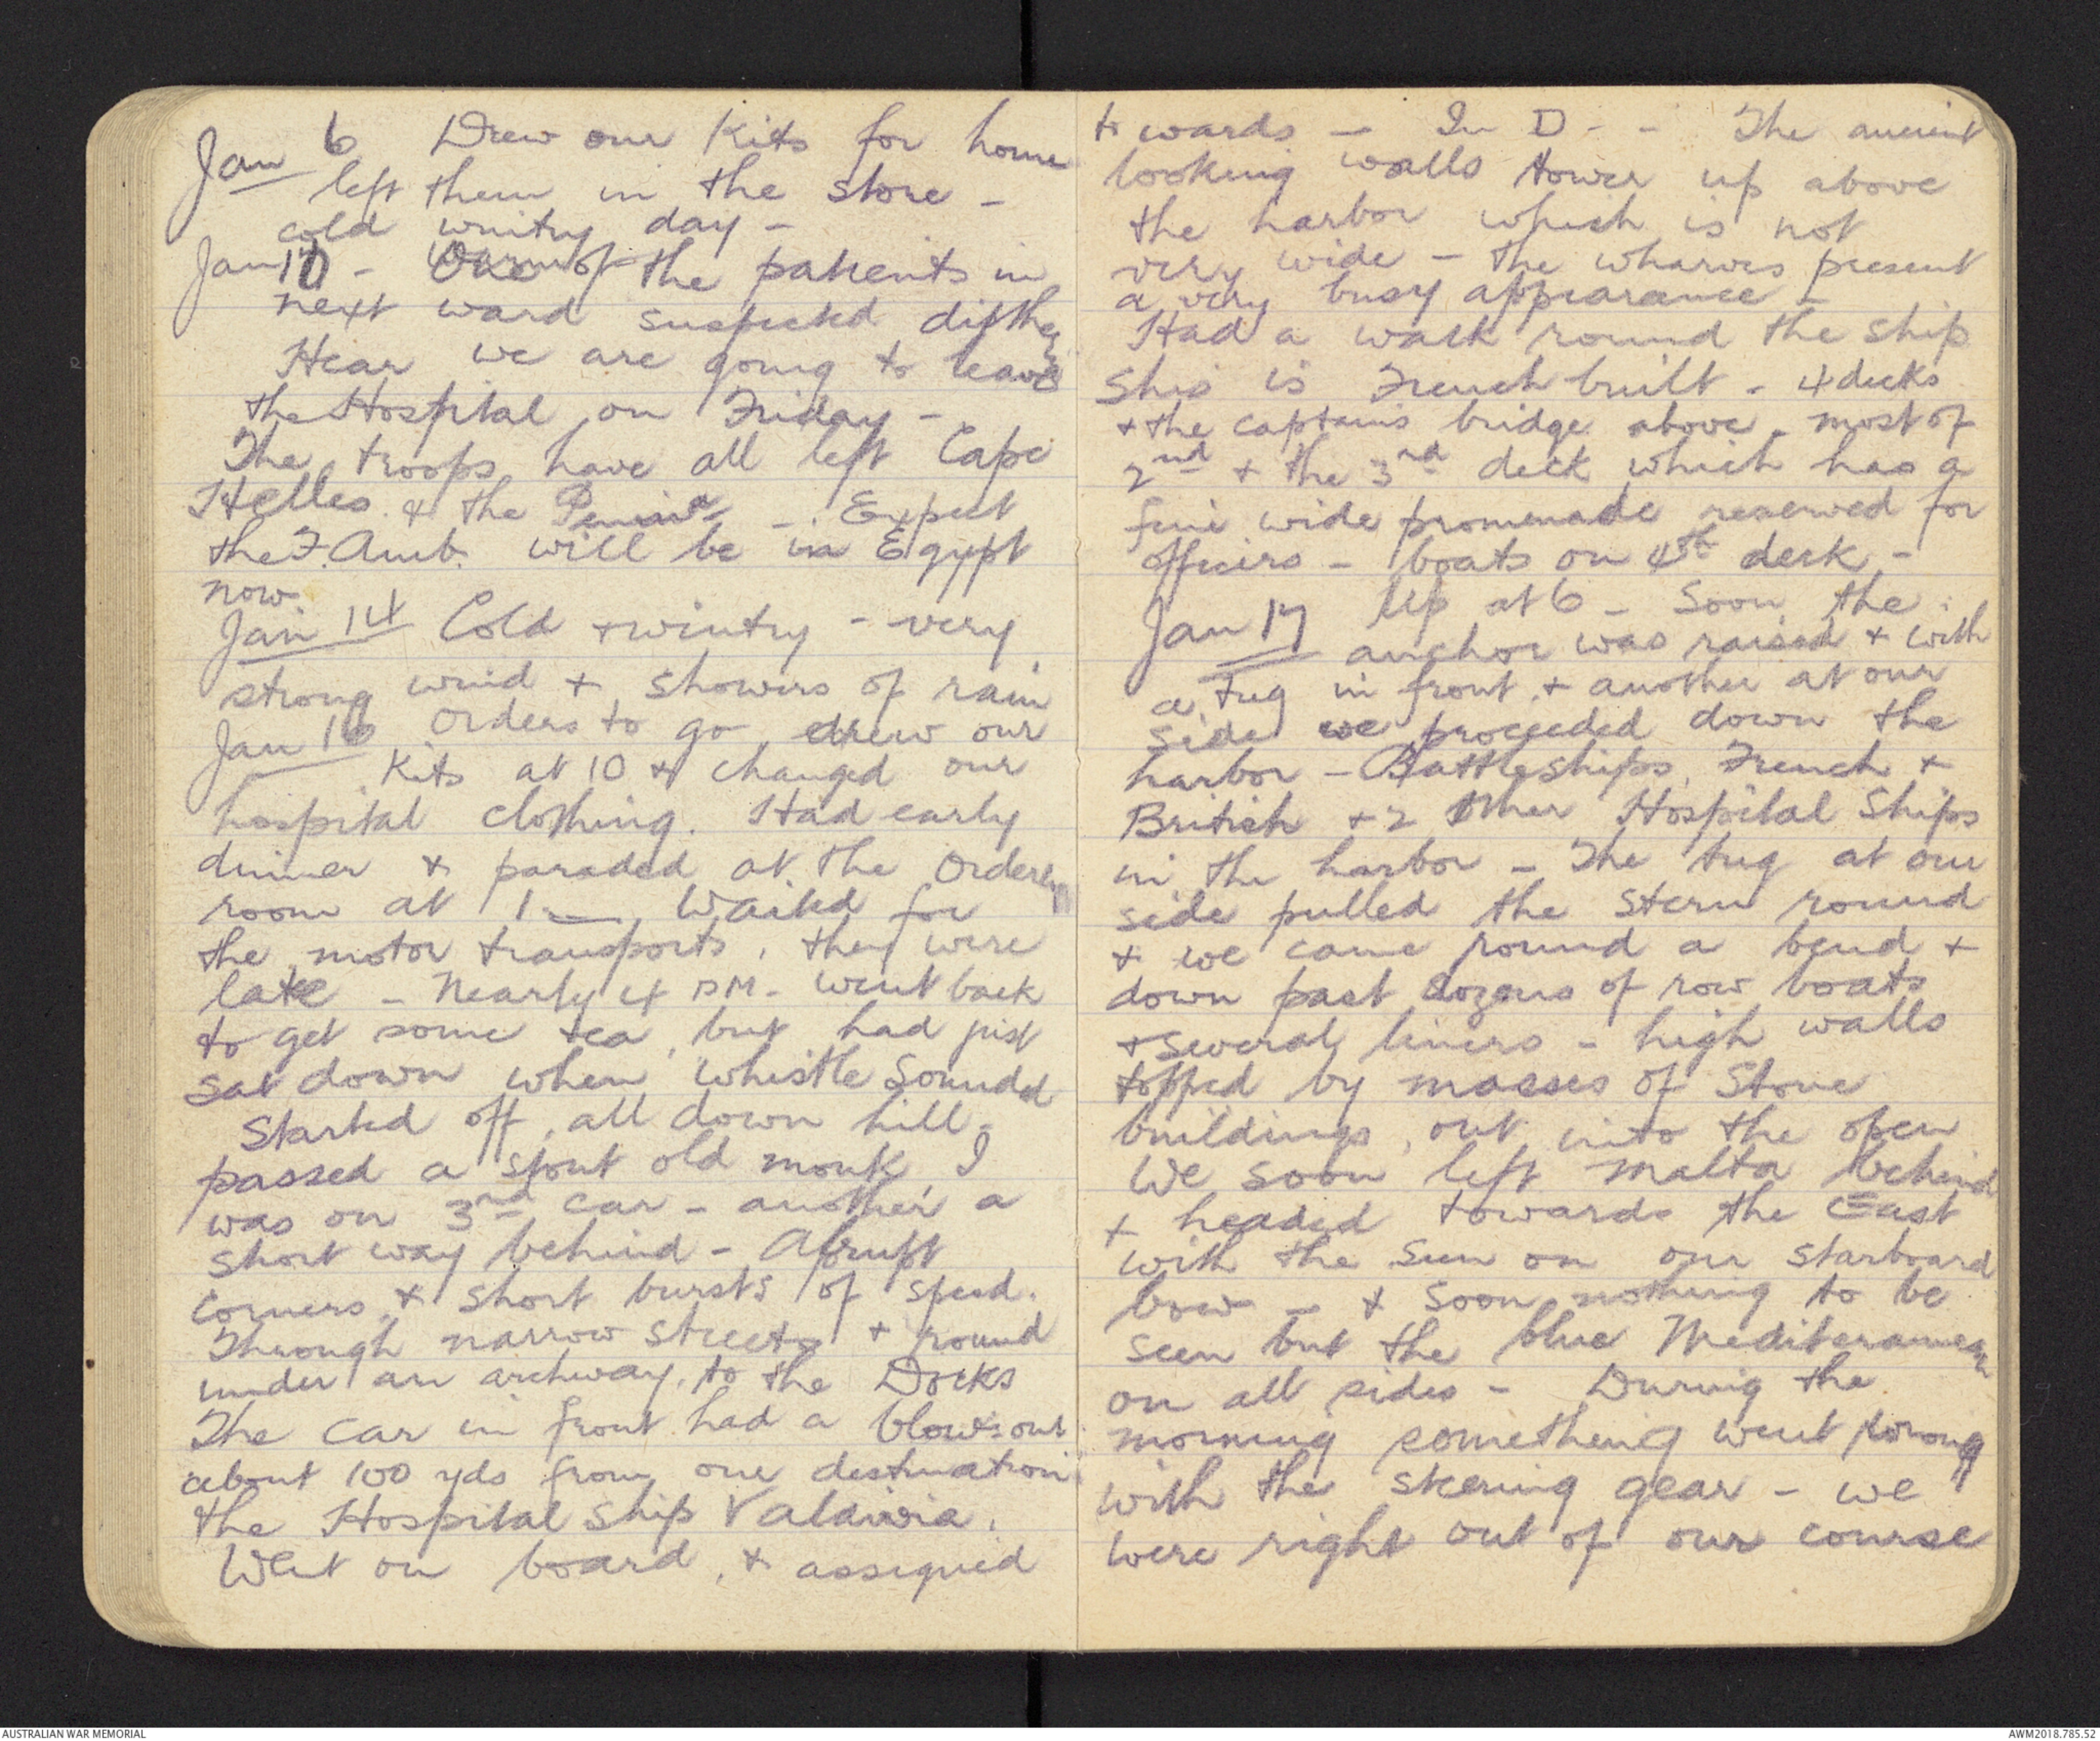 Jan 6 Drew our Kits for home
left them in the store -
cold wintry day -
Jan 10 - One of the patients in
next ward suspected dipthe
Hear we are going to leave
the Hospital on Friday -
The troops have all left Cape
Helles & the - Expect
the F. Amb. will be in Egypt
now.
Jan 14 Cold & wintry - very
strong wind & showers of rain
Jan 16 Orders to go, drew our
Kits at 10 & changed our
hospital clothing. Had early
dinner & paraded at the Orderly
room at 1 - Waited for
the motor transports, they were
late - Nearly 4 PM - went back
to get some tea, but had just
sat down when whistle sounded
Started off, all down hill -
passed a stout old monk, I
was on 3rd car - another a
short way behind - Abrupt
corners & short bursts of speed.
Through narrow streets & round
under an archway, to the Docks
The car in front had a blow out
about 100 yds from our destination
the Hospital Ship Valdivia.
Went on board, & assigned
to wards - In D - - The ancient
looking walls tower up above
the harbor which is not
very wide - the wharves present
a very busy appearance -
Had a walk round the ship
Ship is French built - 4 decks
& the captains bridge above - most of
2nd & the 3rd deck which has a
fine wide promenade reserved for
officers - boats on 4th deck -
Jan 17 Up at 6 - Soon the
anchor was raised & with
a tug in front & another at our
side we proceeded down the
harbor - Battleships, French &
British & 2 other Hospital Ships
in the harbor - The tug at our
side pulled the stern round
& we came round a bend &
down past dozens of row boats
& several liners - high walls
topped by masses of Stone
buildings, out into the open
We soon left Malta behind
& headed towards the East
with the Sun on our starboard
bow - & soon nothing to be
seen but the blue Mediteranean
on all sides - During the
morning something went wrong
with the steering gear - we
were right out of our course
AUSTRALIAN WAR MEMORIAL
AWM2018.785.52